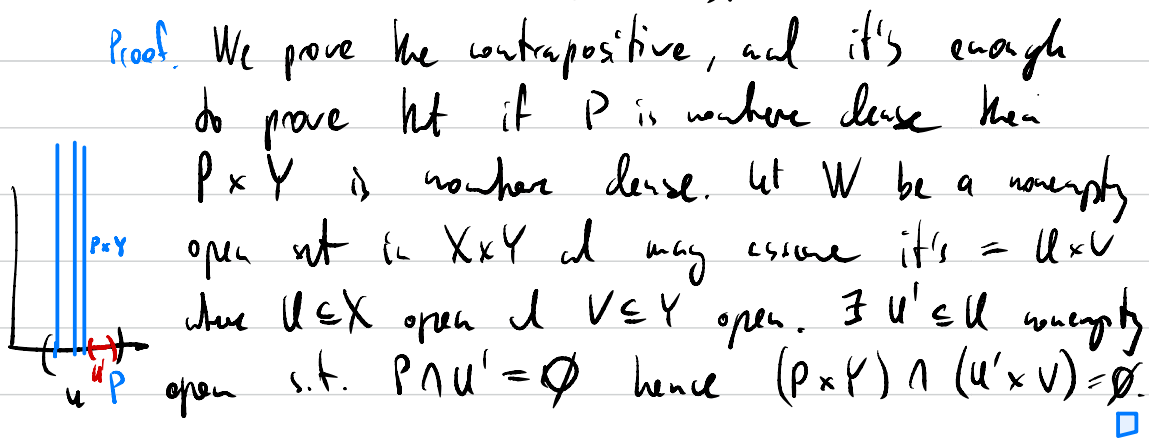 Proof. We prove the contrapositive, and it's enough
to prove tht if P is nowhere dense then
P × Y is nowhere dense. Let W be a nonempty
open set in X×Y and may assume it's = U×V
where U ⊆ X open and V ⊆ Y open. ∃ U' ⊆ U nonempty
open s.t. P ∩ U' = ∅ hence (P × Y) ∩ (U' × V) = ∅.
P×Y
U'
U P